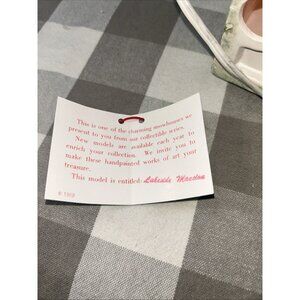 This is one of the charming snowhouses we
present to you from our collectible series.
New models are available each year to
enrich your collection. We invite you to
make these handpainted works of art your
treasure.
This model is entitled: Lakeside Mansion